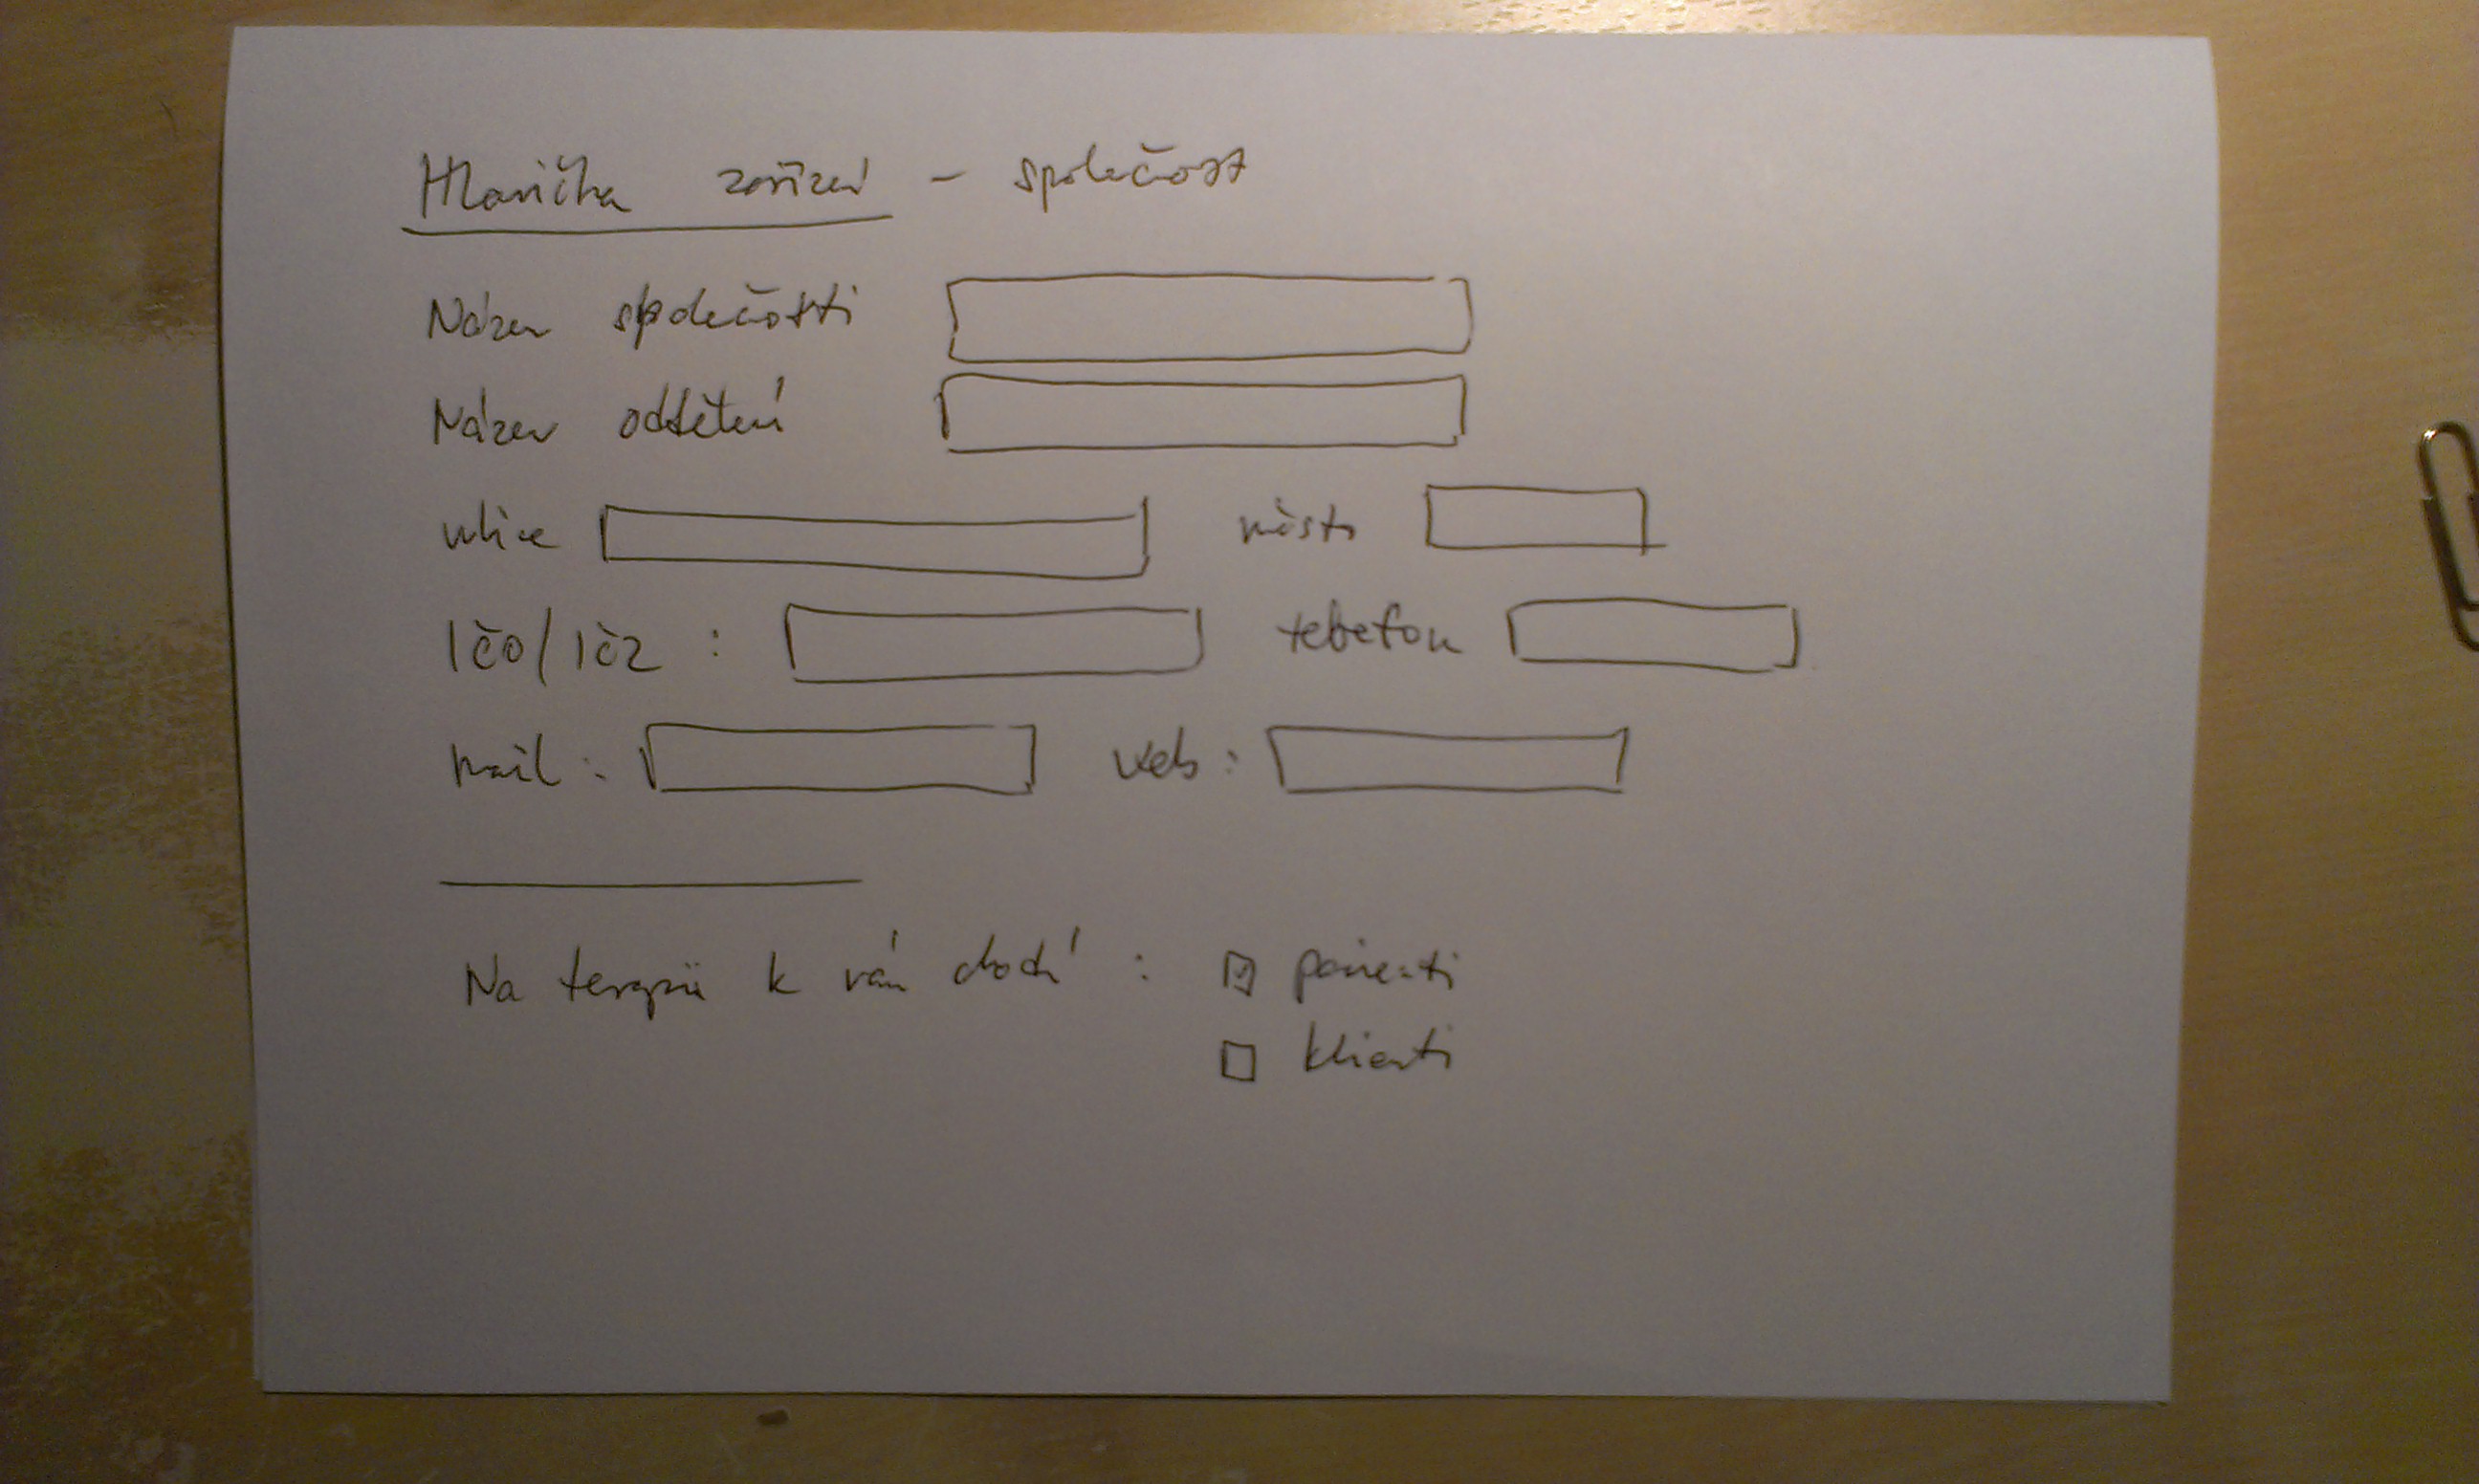 Hlavička zařízení - společnost
Název společnosti
Název oddělení
ulice město
IČO/IČZ : telefon
mail : web :
Na terapii k vám chodí : pacienti
klienti